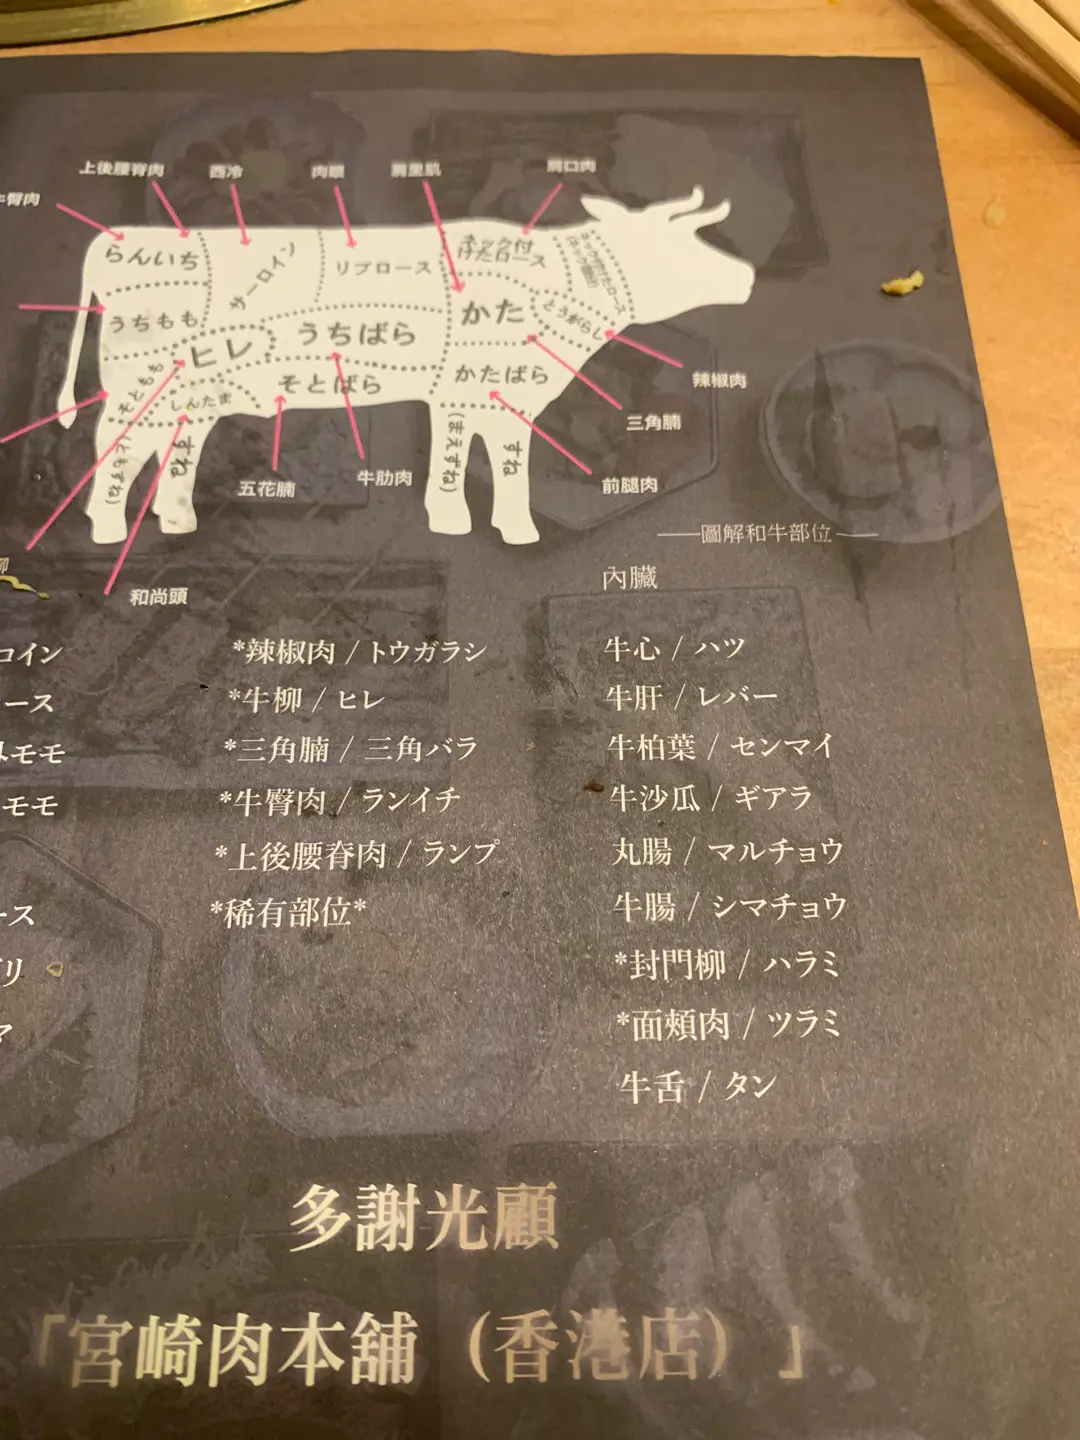 上後腰脊肉
西冷
肉眼
肩里肌
肩口肉
牛臀肉
らんいち
サーロイン
リブロース
うちもも
ヒレ
うちばら
かた
とうがらし
そともも
しんたま
そとばら
かたばら
(ともずね)
すね
(まえずね)
すね
辣椒肉
三角腩
前腿肉
五花腩
牛肋肉
和尚頭
圖解和牛部位
內臟
ロイン
ース
モモ
モモ
ース
リ
マ
*辣椒肉 / トウガラシ
*牛柳 / ヒレ
*三角腩 / 三角バラ
*牛臀肉 / ランイチ
*上後腰脊肉 / ランプ
*稀有部位*
牛心 / ハツ
牛肝 / レバー
牛柏葉 / センマイ
牛沙瓜 / ギアラ
丸腸 / マルチョウ
牛腸 / シマチョウ
*封門柳 / ハラミ
*面頰肉 / ツラミ
牛舌 / タン
多謝光顧
「宮崎肉本舖（香港店）」